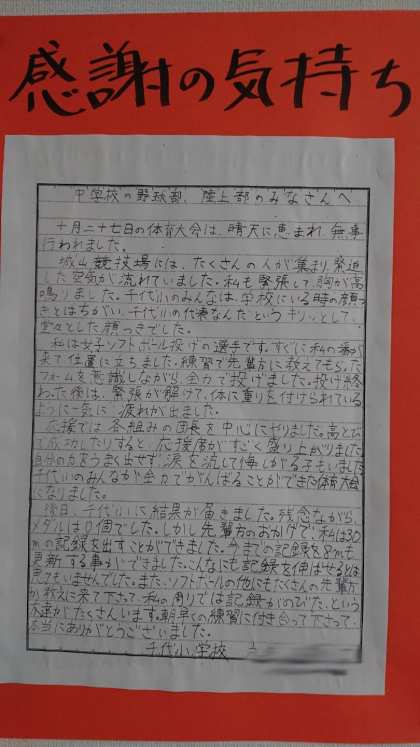 感謝の気持ち
中学校の野球部、陸上部のみなさんへ
十月二十七日の体育大会は、晴天に恵まれ、無事
行われました。
城山競技場には、たくさんの人が集まり、緊迫
した空気が流れていました。私も緊張して、胸が高
鳴りました。千代小のみんなは、学校にいる時の顔つ
きとはちがい、千代小の代表なんだというキリッとして、
堂々とした顔つきでした。
私は女子ソフトボール投げの選手です。すぐに私の番が
来て位置に立ちました。練習で先輩方に教えてもらった
フォームを意識しながら、全力で投げました。投げ終
わった後は、緊張が解けて、体に重りを付けられている
ように一気に疲れが出ました。
応援では、各組みの団長を中心にやりました。高とび
で成功したりすると、応援席がすごく盛り上がりました。
自分の力をうまく出せず、涙を流して悔しがる子もいました。
千代小のみんなが全力でがんばることができた体育大会
になりました。
後日、千代小に結果が届きました。残念ながら、
メダルは0個でした。しかし先輩方のおかげで、私は30
mの記録を出すことができました。今までの記録を8mも
更新する事ができました。こんなにも記録を伸ばせるとは
思ってもいませんでした。また、ソフトボールの他にもたくさんの先輩方
が教えに来て下さって、私の周りでは記録がのびた、という
友達がたくさんいます。朝早くの練習に付き合って下さって、
本当にありがとうございました。
千代小学校